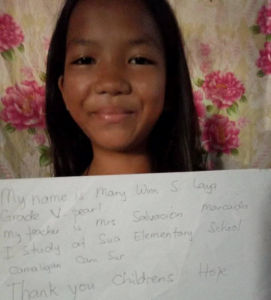 My name is Mary Wm S Laya
Grade V pearl
My teacher is Mrs Salvacion Mercado
I study at Sua Elementary School
Camaligan Cam Sur
Thank you Childrens Hope